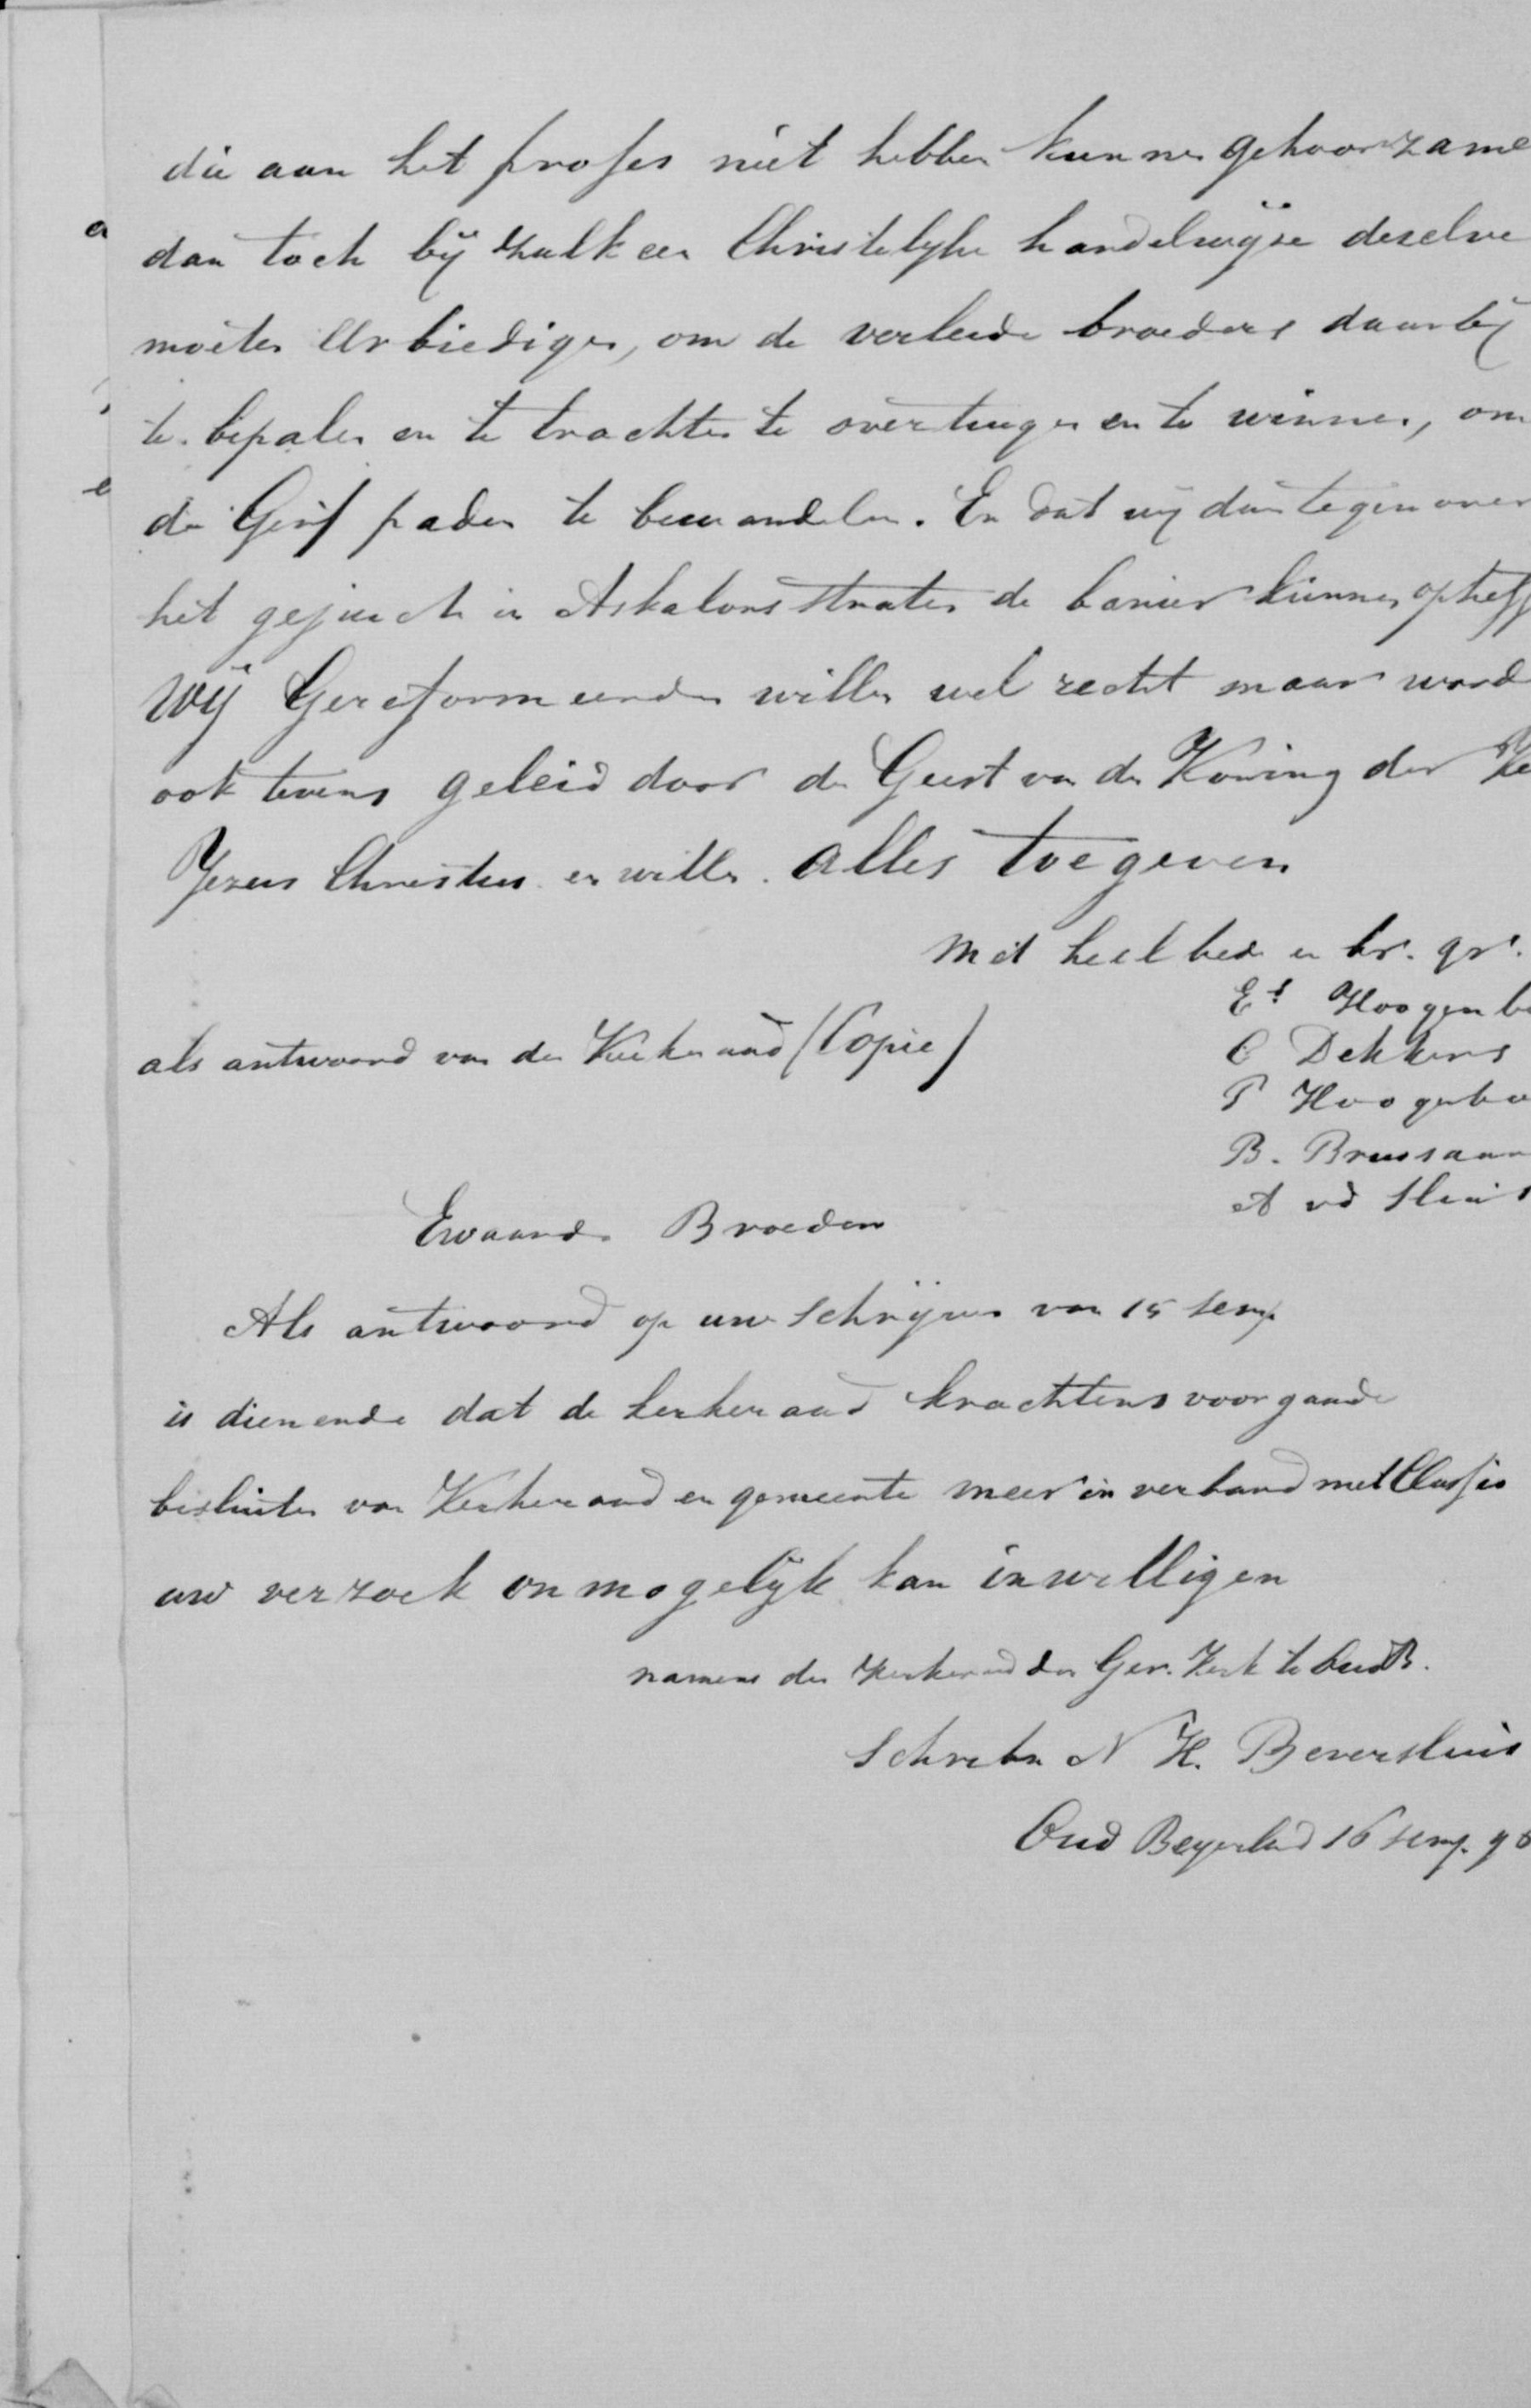 die aan het profes niet hebben kunnen gehoorzame
dan toch bij zulk een Christelijke handelwijze dezelve
moeten Eerbiedigen, om de verleide broeders daarbij
te bepalen en te trachten te overtuigen en te winnen, om
de Geref paden te bewandelen. En dat wij dan tegenover
het gejuich in Askalons straten de banier kunnen opheff
Wij Gereformeerden willen wel recht maar word
ook tevens geleid door den Geest van den Koning der Ke
Jezus Christus en willen alles toegeven
Met heelbede en br. gr.
Es Hoogenbo
C Dekkers
als antwoord van den Kerkeraad (Copie)
P Hoogenbo
B. Brussaar
A vd Sluis
Ewaarde Broeders
Als antwoord op uw schrijven van 15 semp
is dienende dat de kerkeraad krachtens voorgaande
besluiten van Kerkeraad en gemeente meer in verband met Classis
uw verzoek onmogelijk kan inwilligen
namens den Kerkeraad der Ger. Kerk te Oud B.
Schreber N H. Beversluis
Oud Beyerland 16 semp. 98